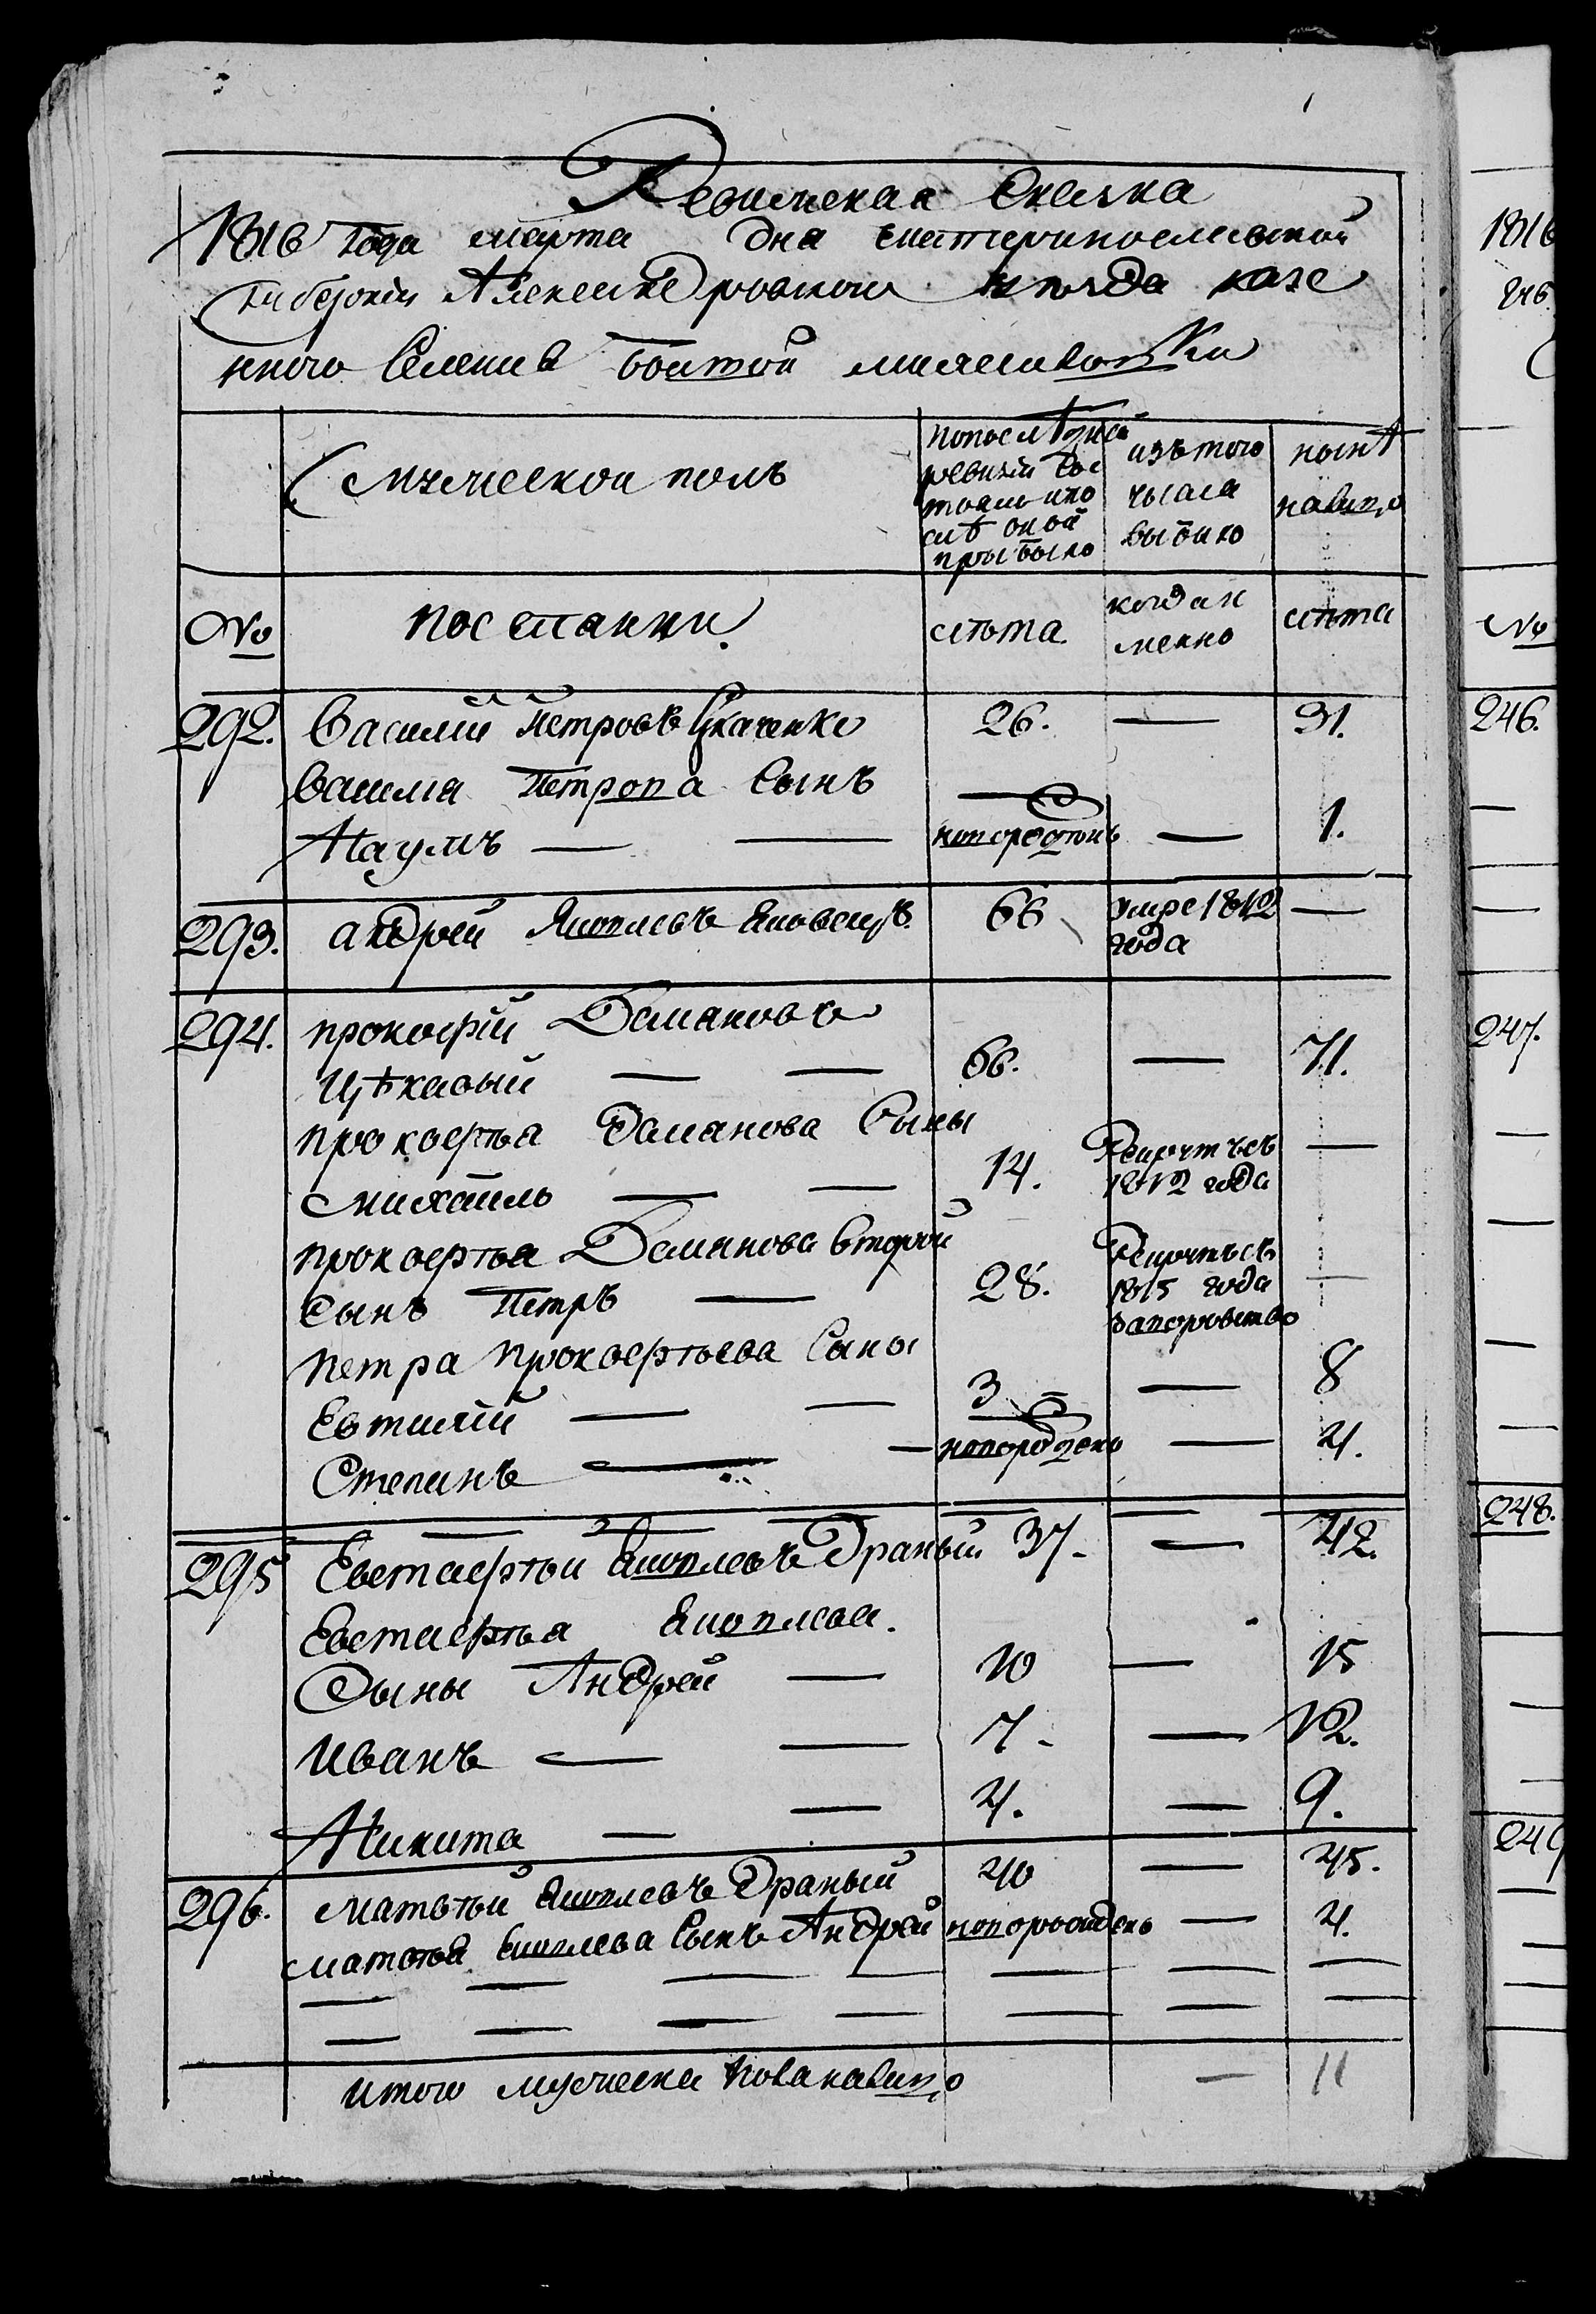 Ревизская Сказка
1816 года марта дня екатеринославской
Губерніи Александровскои уезда казе
нного Селения Болшой михайловки
мужескои полъ
попослѣдней ревизіи состояло ипо слѣ оной прибыло
изътого числа выбыло
нынѣ налицо
№
поселянни
лѣта
когда именно
лѣта
292. Василий Петровъ Ткаченко 26. — 31.
Василия Петрова Сынъ
Наумъ — — новорожденъ — 1.
293. андрей Яковлевъ Яковецъ 66 умре 1812 года —
294. прокофий Демяновъ
Цѣкавый — — 66. — 71.
прокофья Демянова Сыны
михайло — — 14. 1812 года —
прокофья Демянова второй
Сынъ Петръ — 28. 1815 года —
Петра прокофьева Сыны
Евтихій — — 3 — 8
Степанъ — — новорожденъ — 4.
295 Евстафьи Яковлевъ Драный 37. — 42.
Евстафья Яковлева.
Сыны Андрей — 10 — 15
Иванъ — — 7. — 12.
Никита — — 4. — 9.
296. Матвѣй Яковлевъ Драный 40 — 45.
матвѣя Яковлева Сынъ Андрей новорожденъ — 4.
итого мужеска пола налицо — 11
1816
246.
247.
248.
249
№